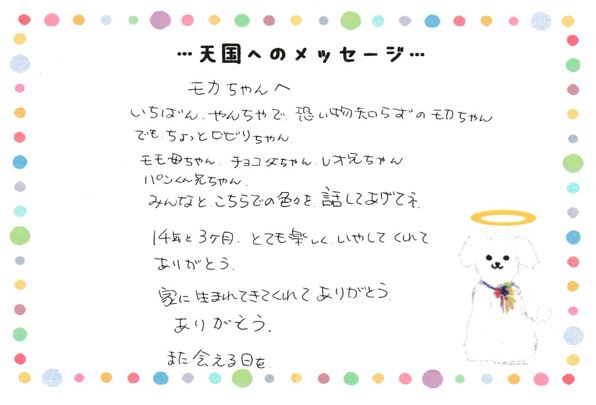 …天国へのメッセージ…
モカちゃんへ
いちばん、やんちゃで、恐い物知らずのモカちゃん
でも、ちょっとビビりちゃん、
モモ母ちゃん、チョコ父ちゃん、レオ兄ちゃん
パンくん兄ちゃん、
みんなと、こちらでの色々を、話してあげてネ、
14年と3ヶ月、とても楽しく、いやしてくれて
ありがとう、
家に生まれてきてくれてありがとう、
ありがとう、
また会える日を、